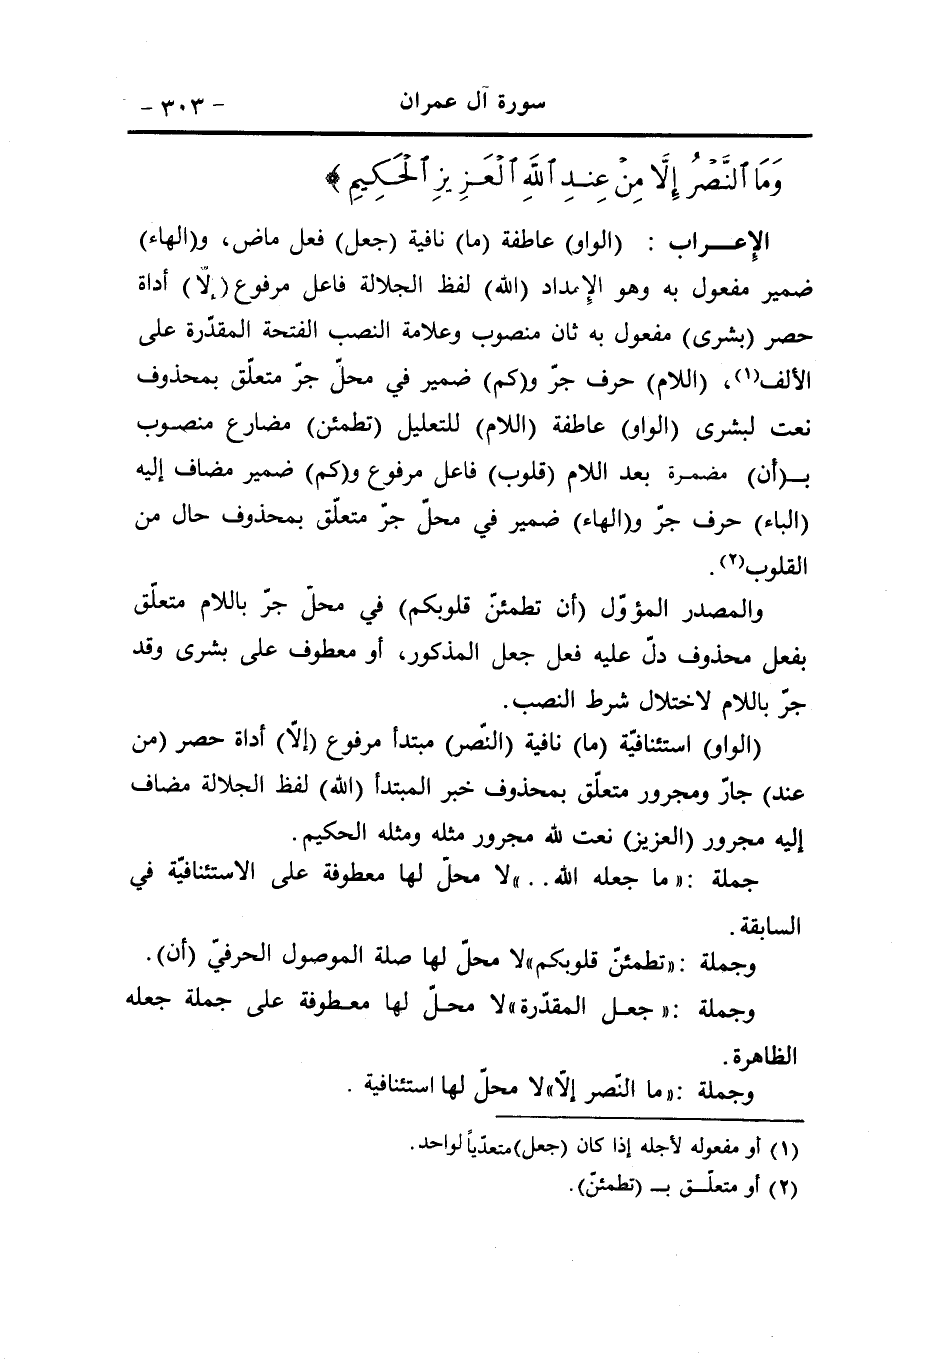 سورة آل عمران - ٣٠٣ -
وَمَا ٱلنَّصۡرُ إِلَّا مِنۡ عِندِ ٱللَّهِ ٱلۡعَزِيزِ ٱلۡحَكِيمِ ﴾
الإعـــراب : (الواو) عاطفة (ما) نافية (جعل) فعل ماض، و(الهاء)
ضمير مفعول به وهو الإمداد (الله) لفظ الجلالة فاعل مرفوع (إلّا) أداة
حصر (بشرى) مفعول به ثان منصوب وعلامة النصب الفتحة المقدّرة على
الألف(١)، (اللام) حرف جرّ و(كم) ضمير في محلّ جرّ متعلّق بمحذوف
نعت لبشرى (الواو) عاطفة (اللام) للتعليل (تطمئن) مضارع منصوب
بـ(أن) مضمرة بعد اللام (قلوب) فاعل مرفوع و(كم) ضمير مضاف إليه
(الباء) حرف جرّ و(الهاء) ضمير في محلّ جرّ متعلّق بمحذوف حال من
القلوب(٢).
والمصدر المؤوّل (أن تطمئنّ قلوبكم) في محلّ جرّ باللام متعلّق
بفعل محذوف دلّ عليه فعل جعل المذكور، أو معطوف على بشرى وقد
جرّ باللام لاختلال شرط النصب.
(الواو) استئنافيّة (ما) نافية (النّصر) مبتدأ مرفوع (إلّا) أداة حصر (من
عند) جارّ ومجرور متعلّق بمحذوف خبر المبتدأ (الله) لفظ الجلالة مضاف
إليه مجرور (العزيز) نعت لله مجرور مثله ومثله الحكيم.
جملة :«ما جعله الله . .»لا محلّ لها معطوفة على الاستئنافيّة في
السابقة.
وجملة :«تطمئنّ قلوبكم»لا محلّ لها صلة الموصول الحرفيّ (أن).
وجملة :«جعـل المقدّرة»لا محـلّ لها معـطوفة على جملة جعله
الظاهرة.
وجملة :«ما النّصر إلّا»لا محلّ لها استئنافية .
(١) أو مفعوله لأجله إذا كان (جعل)متعدّياً لواحد.
(٢) أو متعلّـق بـ (تطمئنّ).